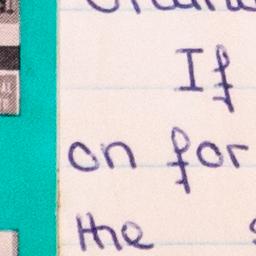 If
on for
the